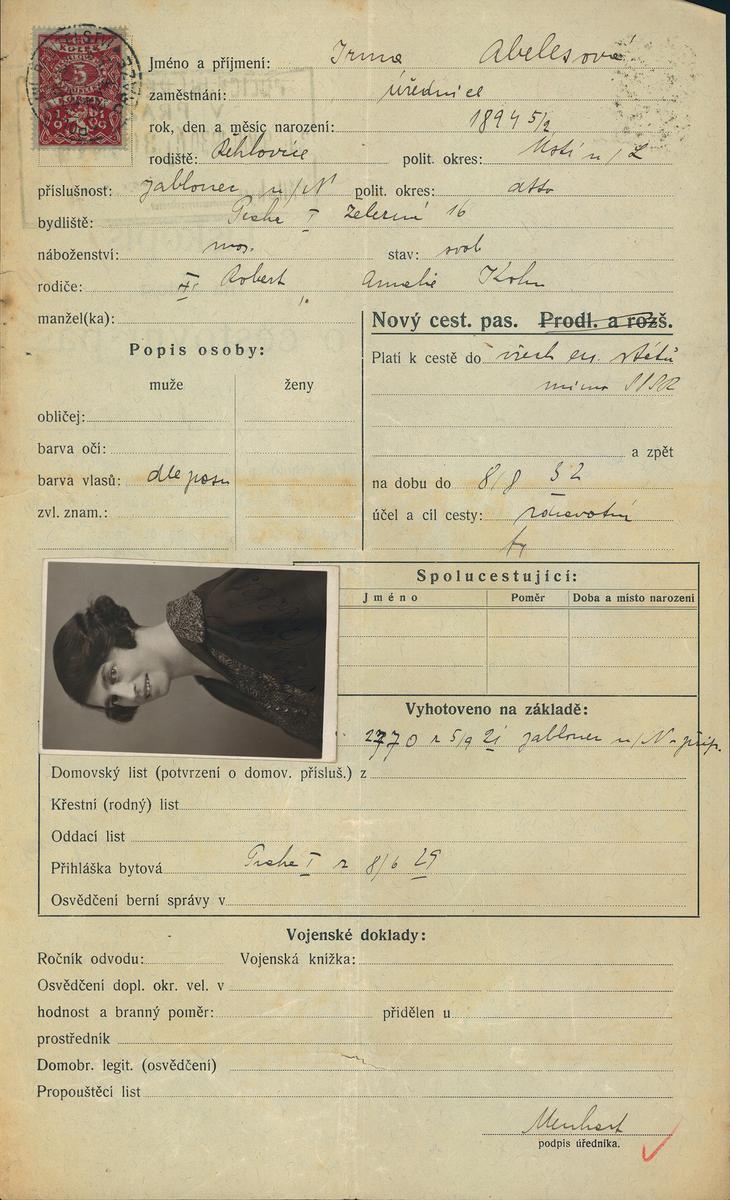 Jméno a příjmení: Irma Abelesová
zaměstnání: úřednice
rok, den a měsíc narození: 1894 5/2
rodiště: Řehlovice polit. okres: Ústí n/L
příslušnost: Jablonec n/N polit. okres: dtto
bydliště: Praha I Železná 16
náboženství: mos. stav: svob
rodiče: Robert Amalie Kohn
manžel(ka):
Nový cest. pas. Prodl. a rozš.
Popis osoby:
muže ženy
obličej:
barva očí:
barva vlasů: dle pasu
zvl. znam.:
Platí k cestě do všech ev. států
mimo SSSR
a zpět
na dobu do 8/8 32
účel a cíl cesty: zdravotní
Spolucestující:
Jméno Poměr Doba a místo narození
Vyhotoveno na základě:
2770 z 5/9 21 Jablonec n/N
Domovský list (potvrzení o domov. přísluš.) z
Křestní (rodný) list
Oddací list
Přihláška bytová Praha I z 8/6 29
Osvědčení berní správy v
Vojenské doklady:
Ročník odvodu: Vojenská knížka:
Osvědčení dopl. okr. vel. v
hodnost a branný poměr: přidělen u
prostředník
Domobr. legit. (osvědčení)
Propouštěcí list
podpis úředníka.